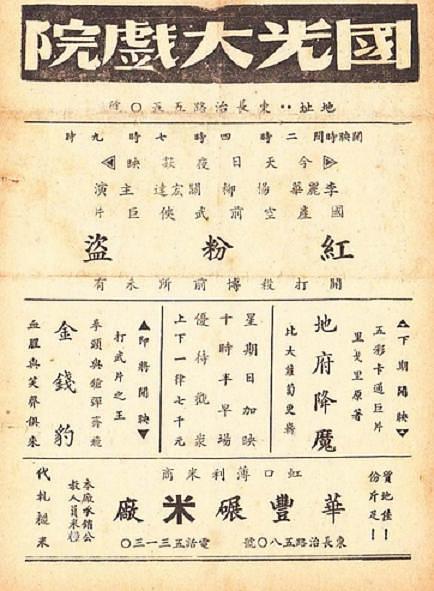 國光大戲院
地址：東長治路五五〇號
開映時間 二時 四時 七時 九時
今天日夜獻映
李麗華 楊柳 關宏達 主演
國產空前武俠巨片
紅粉盜
開打殺搏前所未有
下期開映
五彩卡通巨片
里戈里原著
地府降魔
比大
星期日加映
十時半早場
優待觀衆
上下一律七千元
即將開映
打武片之王
金錢豹
拳頭與槍彈齊飛
血腥與笑聲俱來
質地佳！
份斤足！
虹口薄利米商
華豐碾米廠
東長治路五八〇號 電話五三一三〇
本廠承銷公
教人員米糧
代軋糙米